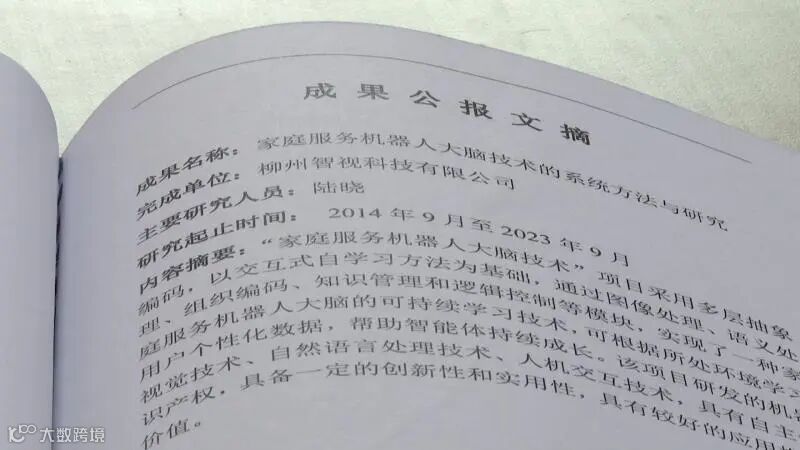 成果公报文摘
成果名称：家庭服务机器人大脑技术的系统方法与研究
完成单位：柳州智视科技有限公司
主要研究人员：陆晓
研究起止时间：2014年9月至2023年9月
内容摘要：“家庭服务机器人大脑技术”项目采用多层抽象
编码，以交互式自学习方法为基础，通过图像处理、语义处
理、组织编码、知识管理和逻辑控制等模块，实现了一种家
庭服务机器人大脑的可持续学习技术，可根据所处环境学习
用户个性化数据，帮助智能体持续成长。该项目研发的机器
视觉技术、自然语言处理技术、人机交互技术，具有自主
识产权，具备一定的创新性和实用性，具有较好的应用
价值。
大数跨境